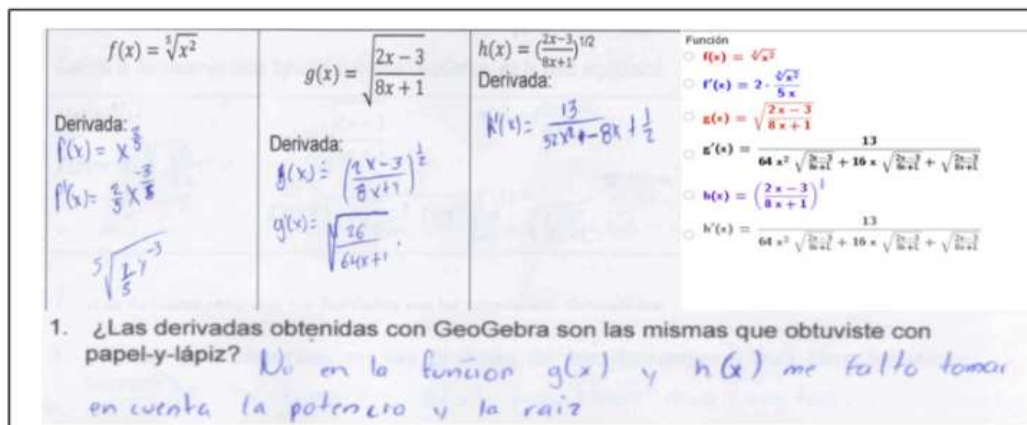 f(x) = ⁵√x²
Derivada:
f(x) = x^(2/5)
f'(x) = 2/5 x^(-3/5)
⁵√(2/5 x^-3)
g(x) = √((2x − 3)/(8x + 1))
Derivada:
g(x) = ((2x-3)/(8x+1))^(1/2)
g'(x) = √(26/(64x+1))
h(x) = ((2x−3)/(8x+1))^1/2
Derivada:
h'(x) =
Función
f(x) = ⁵√x²
f'(x) = 2 · ⁵√x²/(5 x)
g(x) = √((2 x − 3)/(8 x + 1))
g'(x) = 13/(64 x² √((2x−3)/(8x+1)) + 16 x √((2x−3)/(8x+1)) + √((2x−3)/(8x+1)))
h(x) = ((2 x − 3)/(8 x + 1))^(1/2)
h'(x) = 13/(64 x² √((2x−3)/(8x+1)) + 16 x √((2x−3)/(8x+1)) + √((2x−3)/(8x+1)))
1. ¿Las derivadas obtenidas con GeoGebra son las mismas que obtuviste con
papel-y-lápiz? No en la función g(x) y h(x) me falto tomar
en cuenta la potencia y la raiz